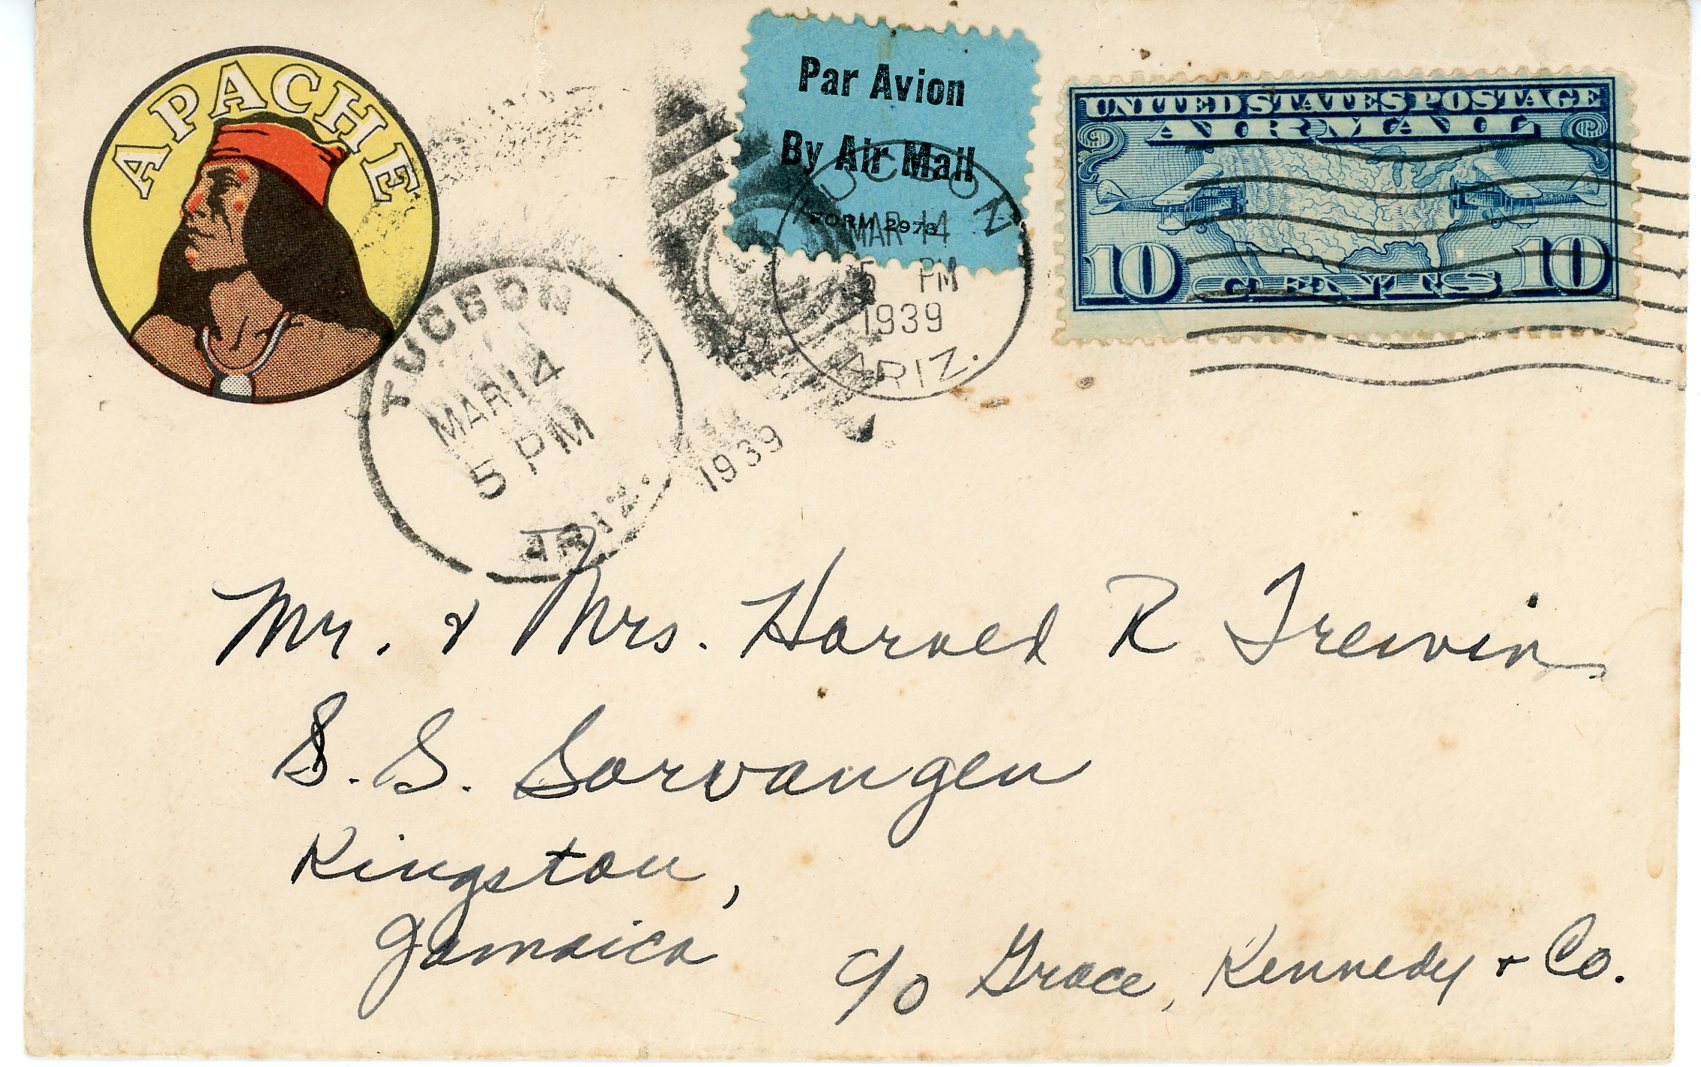 APACHE
Par Avion
By Air Mail
FORM 2978
UNITED STATES POSTAGE
AIR MAIL
10 CENTS 10
TUCSON
MAR 14
5 PM
1939
ARIZ.
TUCSON
MAR 14
5 PM
1939
ARIZ.
Mr. & Mrs. Harold R Trewin
S. S. Sorvangen
Kingston,
Jamaica
c/o Grace, Kennedy & Co.